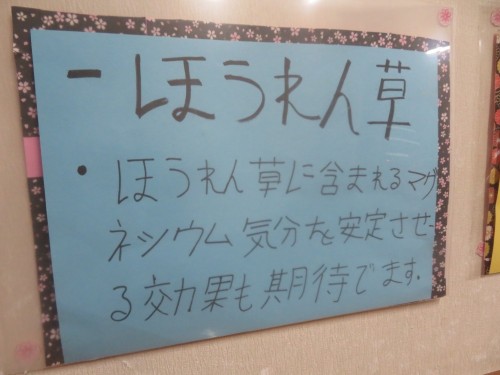 ーほうれん草
・ほうれん草に含まれるマグ
ネシウム気分を安定させ
る効果も期待でます.